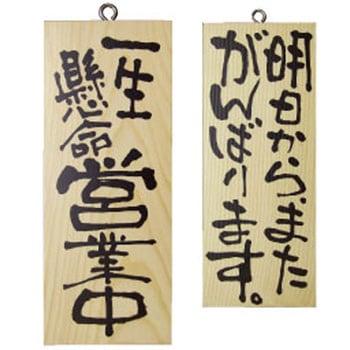 一生
懸命
営業中
明日から、また
がんばります。